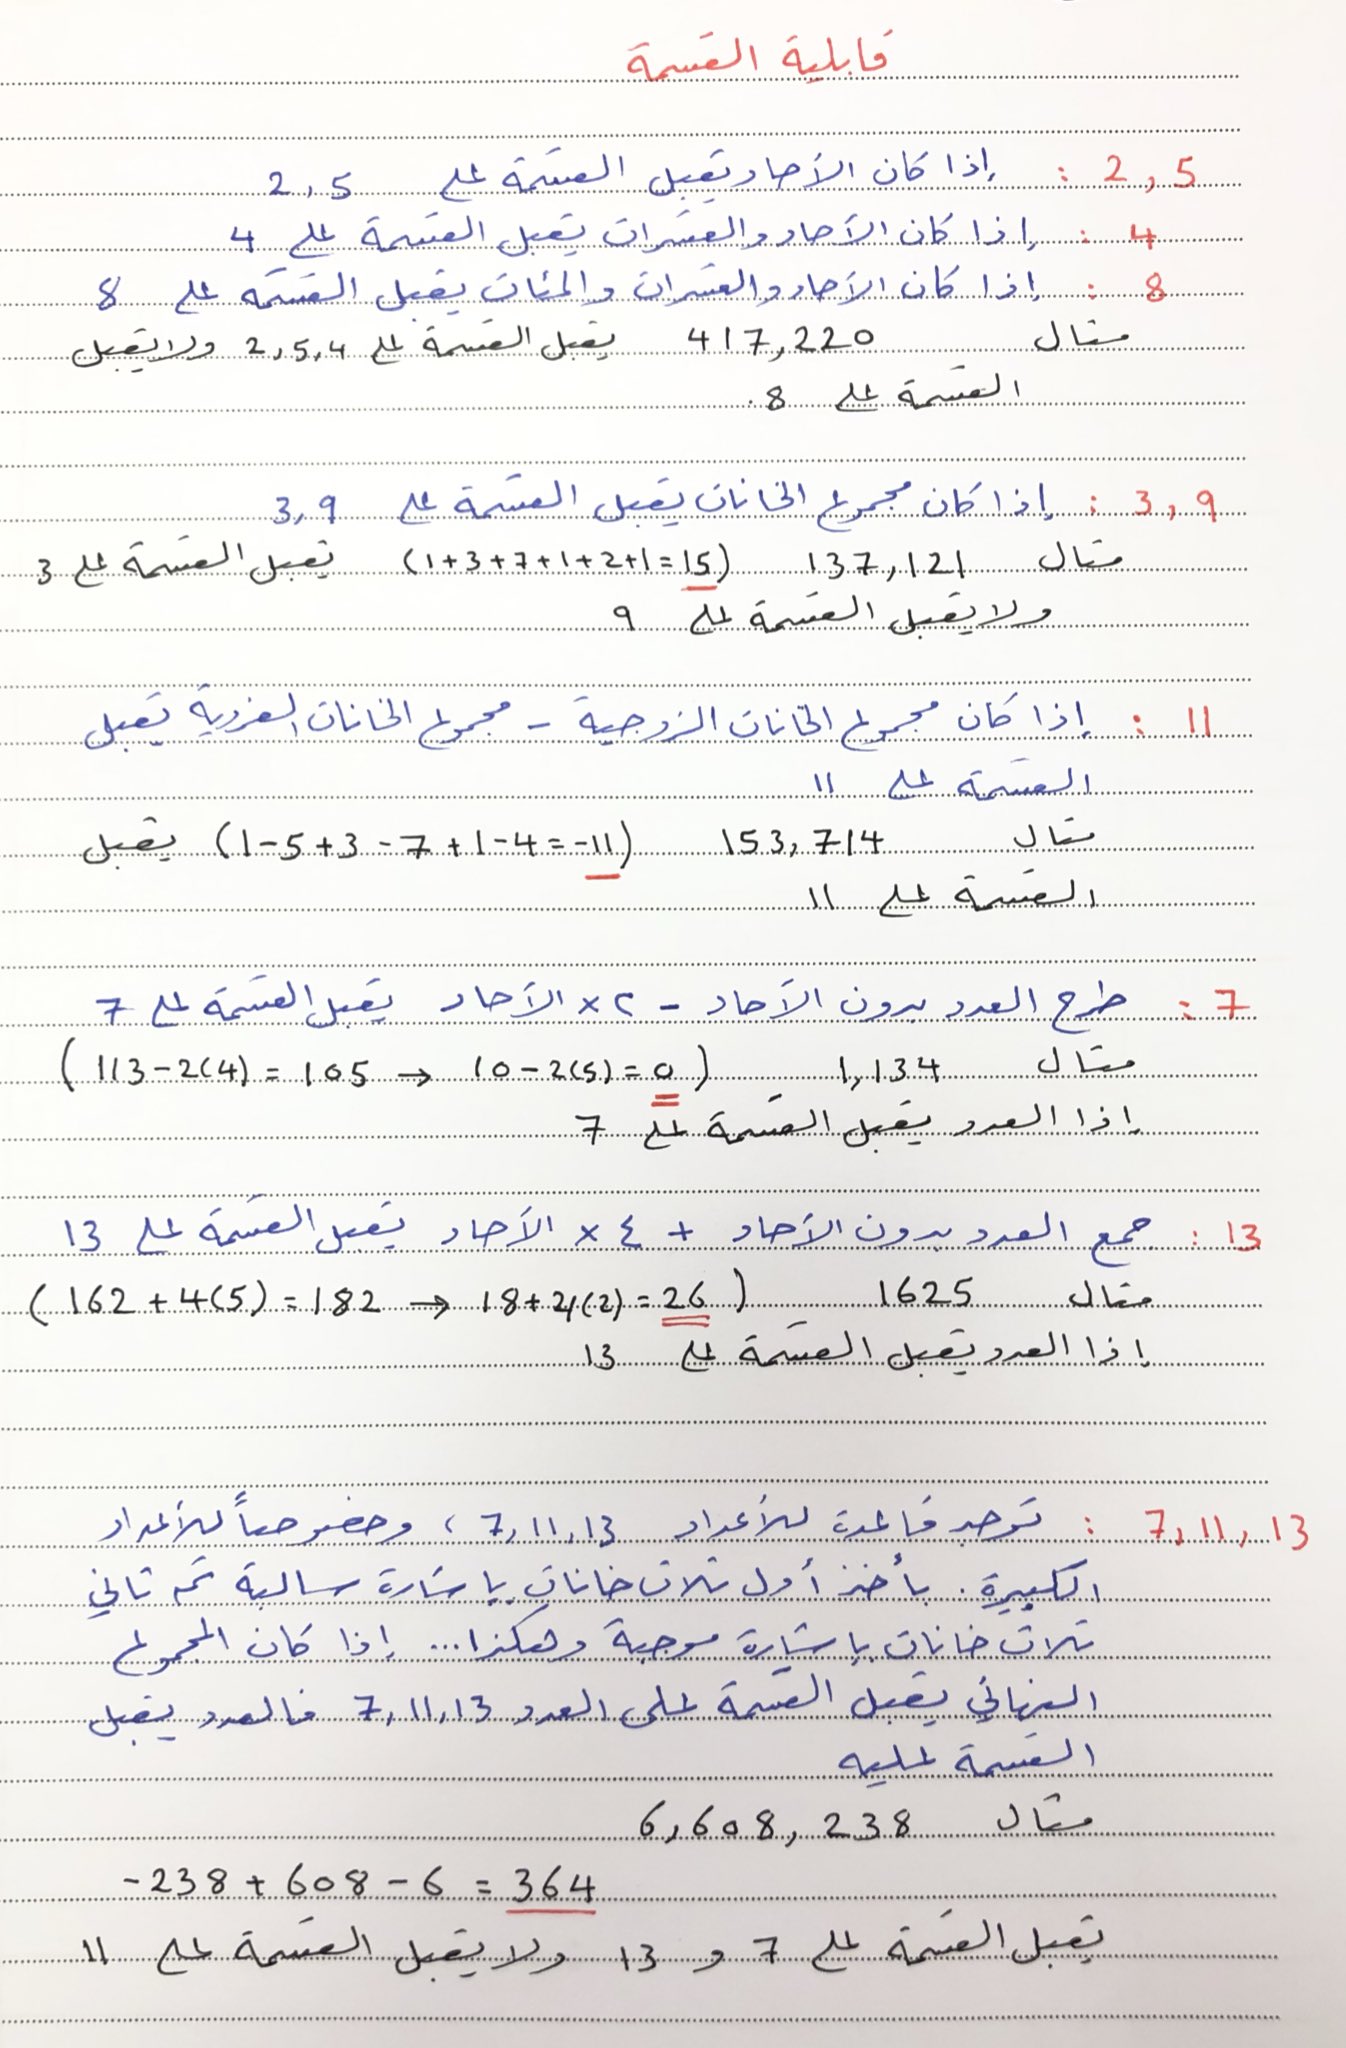 قابلية القسمة
2,5 : إذا كان الآحاد تقبل القسمة على 2,5
4 : إذا كان الآحاد والعشرات يقبل القسمة على 4
8 : إذا كان الآحاد والعشرات والمئات يقبل القسمة على 8
مثال 417,220 يقبل القسمة على 2,5,4 ولا يقبل
القسمة على 8.
3,9 : إذا كان مجموع الخانات يقبل القسمة على 3,9
مثال 137,121 (1+3+7+1+2+1=15) تقبل القسمة على 3
ولا يقبل القسمة على 9
11 : إذا كان مجموع الخانات الزوجية - مجموع الخانات الفردية تقبل
القسمة على 11
مثال 153,714 (1-5+3-7+1-4=-11) يقبل
القسمة على 11
7 : طرح العدد بدون الآحاد - ٢ × الآحاد يقبل القسمة على 7
مثال 1,134 (113-2(4)=105 → 10-2(5)=0)
إذا العدد يقبل القسمة على 7
13 : جمع العدد بدون الآحاد + ٤ × الآحاد يقبل القسمة على 13
مثال 1625 (162+4(5)=182 → 18+4(2)=26)
إذا العدد يقبل القسمة على 13
7,11,13 : توجد قاعدة للأعداد 7,11,13 ، وخصوصاً للأعداد
الكبيرة. بأخذ أول ثلاث خانات بإشارة سالبة ثم ثاني
ثلاث خانات بإشارة موجبة وهكذا... إذا كان المجموع
النهائي يقبل القسمة على العدد 7,11,13 فالعدد يقبل
القسمة عليه
مثال 6,608,238
-238+608-6=364
تقبل القسمة على 7 و 13 ولا يقبل القسمة على 11